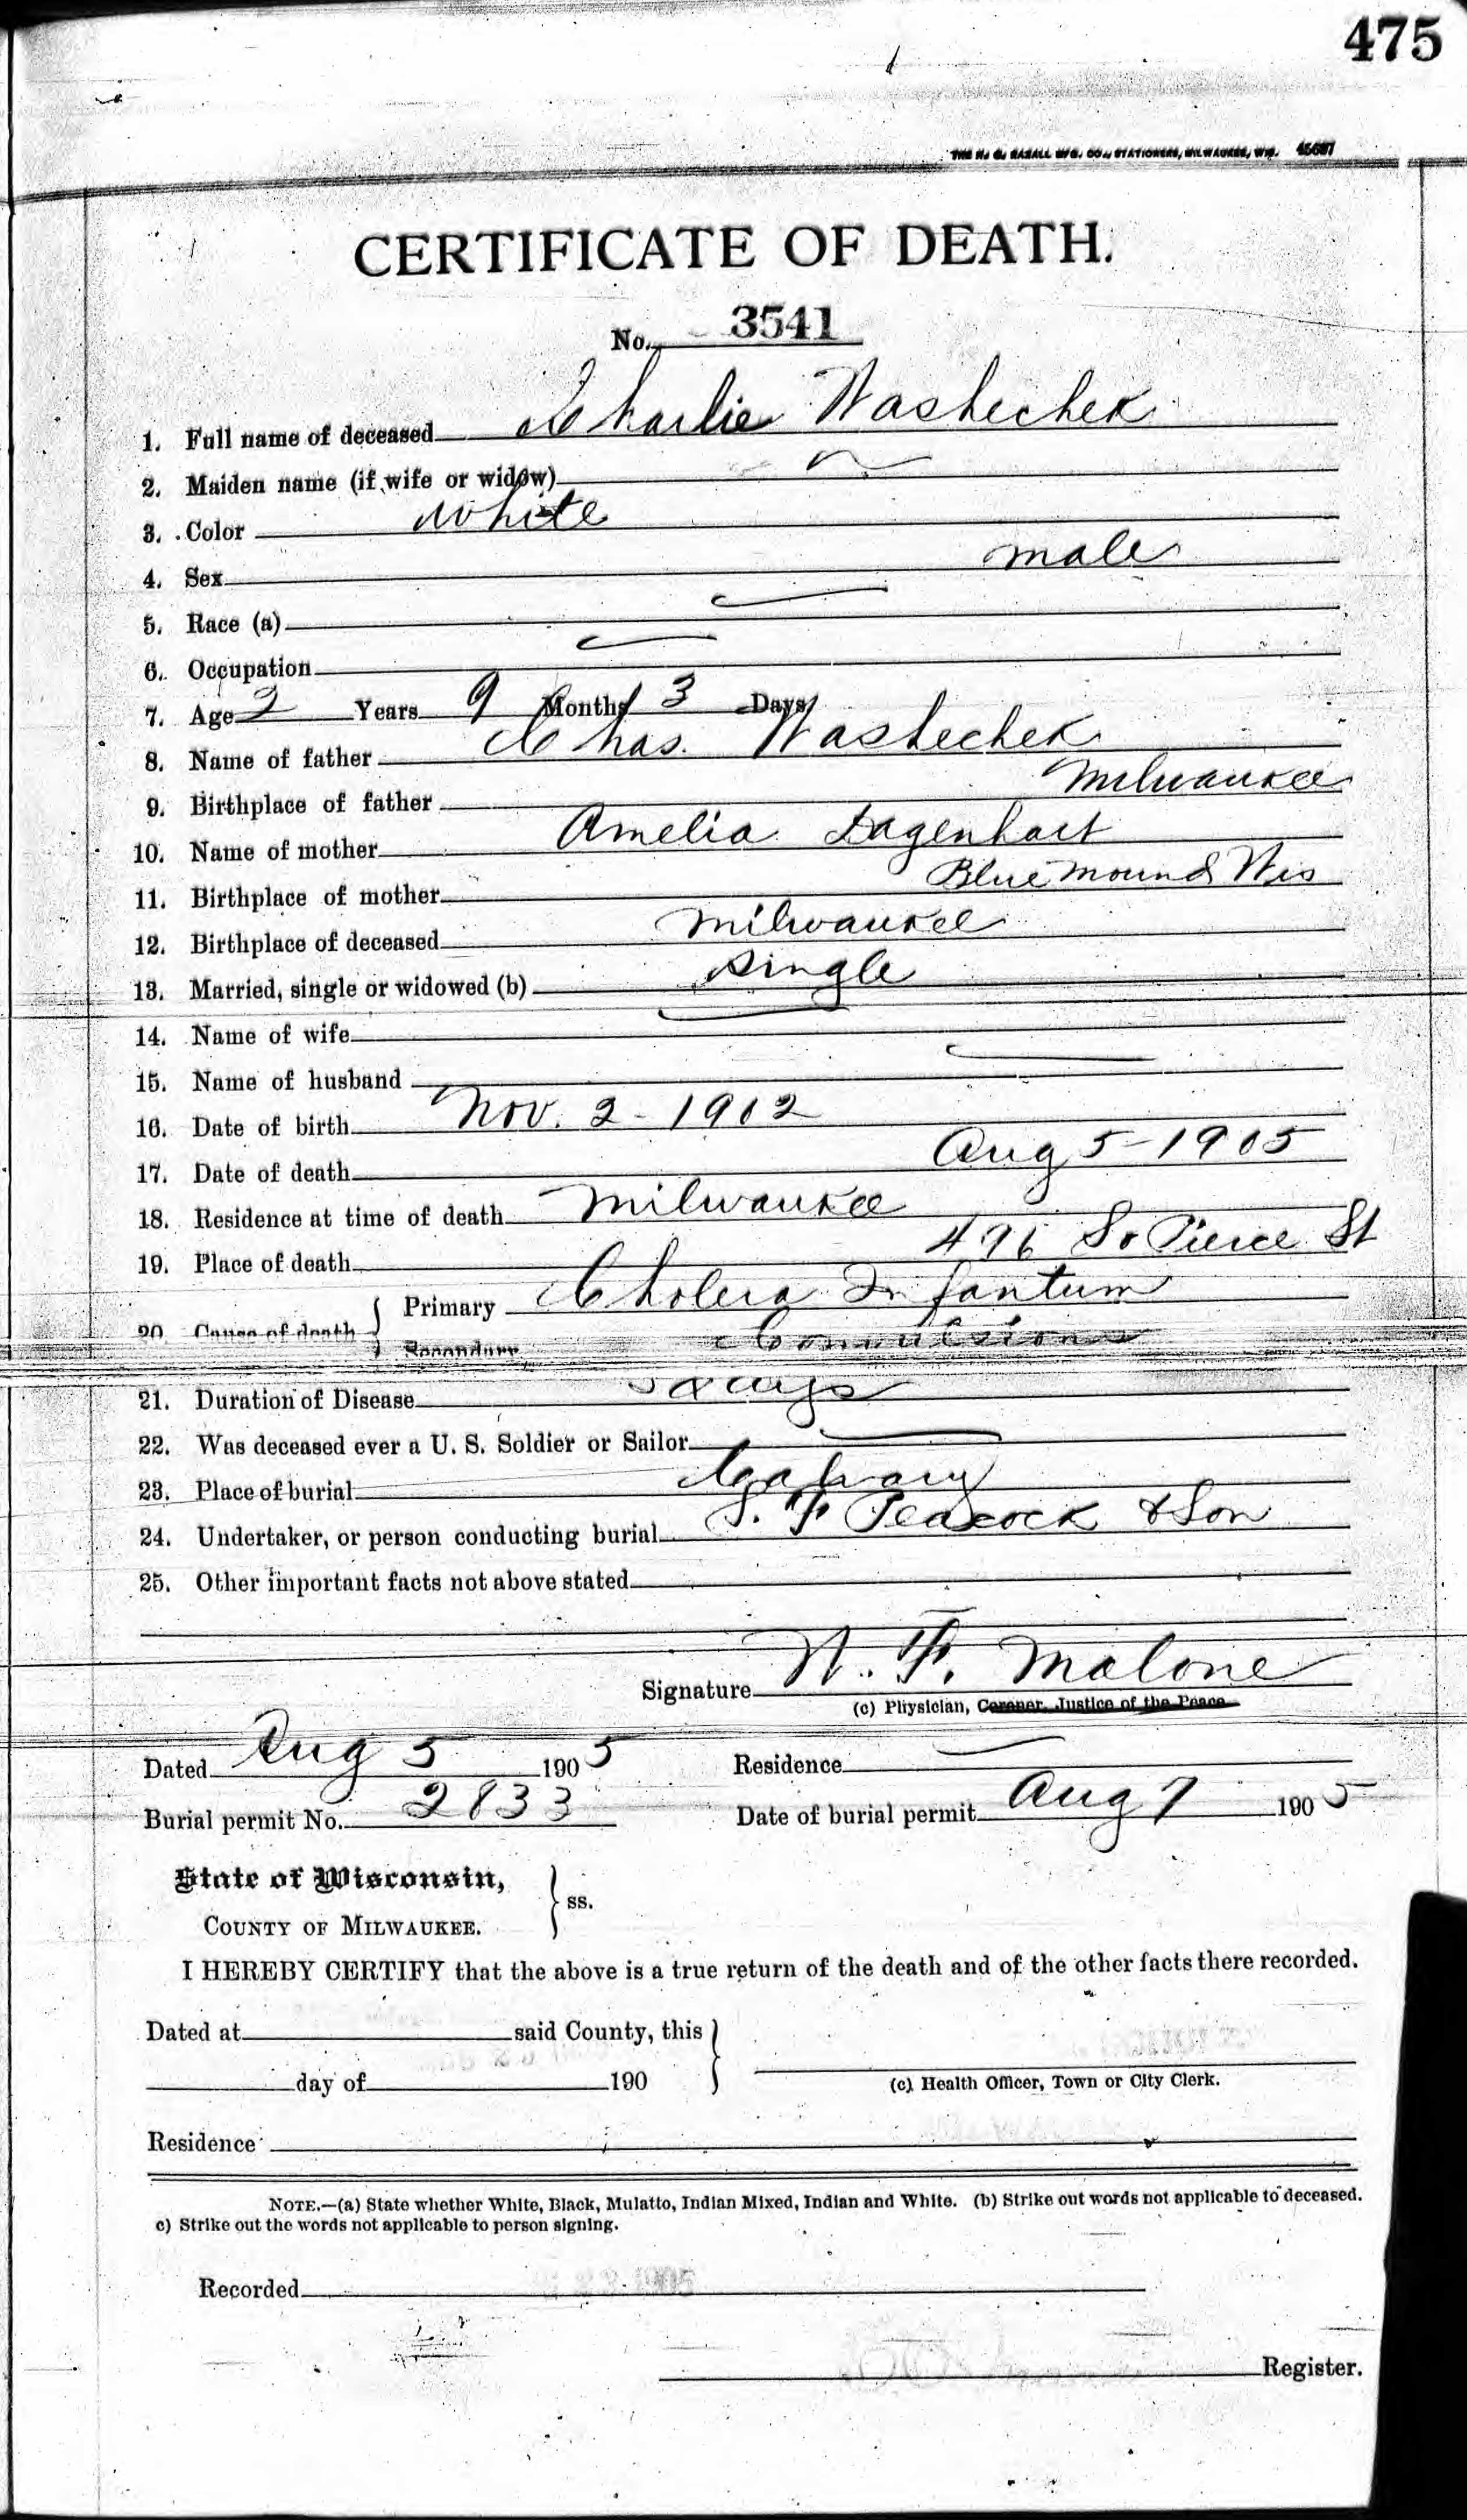 475
THE H. G. RAZALL MFG. CO., STATIONERS, MILWAUKEE, WIS. 45687
CERTIFICATE OF DEATH.
No. 3541
1. Full name of deceased Charlie Washechek
2. Maiden name (if wife or widow)
3. Color White
4. Sex male
5. Race (a)
6. Occupation
7. Age 2 Years 9 Months 3 Days
8. Name of father Chas. Washechek
9. Birthplace of father Milwaukee
10. Name of mother Amelia Dagenhart
11. Birthplace of mother Blue Mound Wis
12. Birthplace of deceased Milwaukee
13. Married, single or widowed (b) Single
14. Name of wife
15. Name of husband
16. Date of birth Nov. 2 - 1902
17. Date of death Aug 5 - 1905
18. Residence at time of death Milwaukee
19. Place of death 496 So Pierce St
20. Cause of death Primary Cholera Infantum
Secondary Convulsions
21. Duration of Disease days
22. Was deceased ever a U. S. Soldier or Sailor
23. Place of burial Calvary
24. Undertaker, or person conducting burial S. F. Peacock & Son
25. Other important facts not above stated
Signature W. F. Malone
(c) Physician, Coroner, Justice of the Peace
Dated Aug 5 1905 Residence
Burial permit No. 2833 Date of burial permit Aug 7 1905
State of Wisconsin,
COUNTY OF MILWAUKEE. ss.
I HEREBY CERTIFY that the above is a true return of the death and of the other facts there recorded.
Dated at said County, this
day of 190
(c) Health Officer, Town or City Clerk.
Residence
NOTE.—(a) State whether White, Black, Mulatto, Indian Mixed, Indian and White. (b) Strike out words not applicable to deceased.
c) Strike out the words not applicable to person signing.
Recorded
Register.